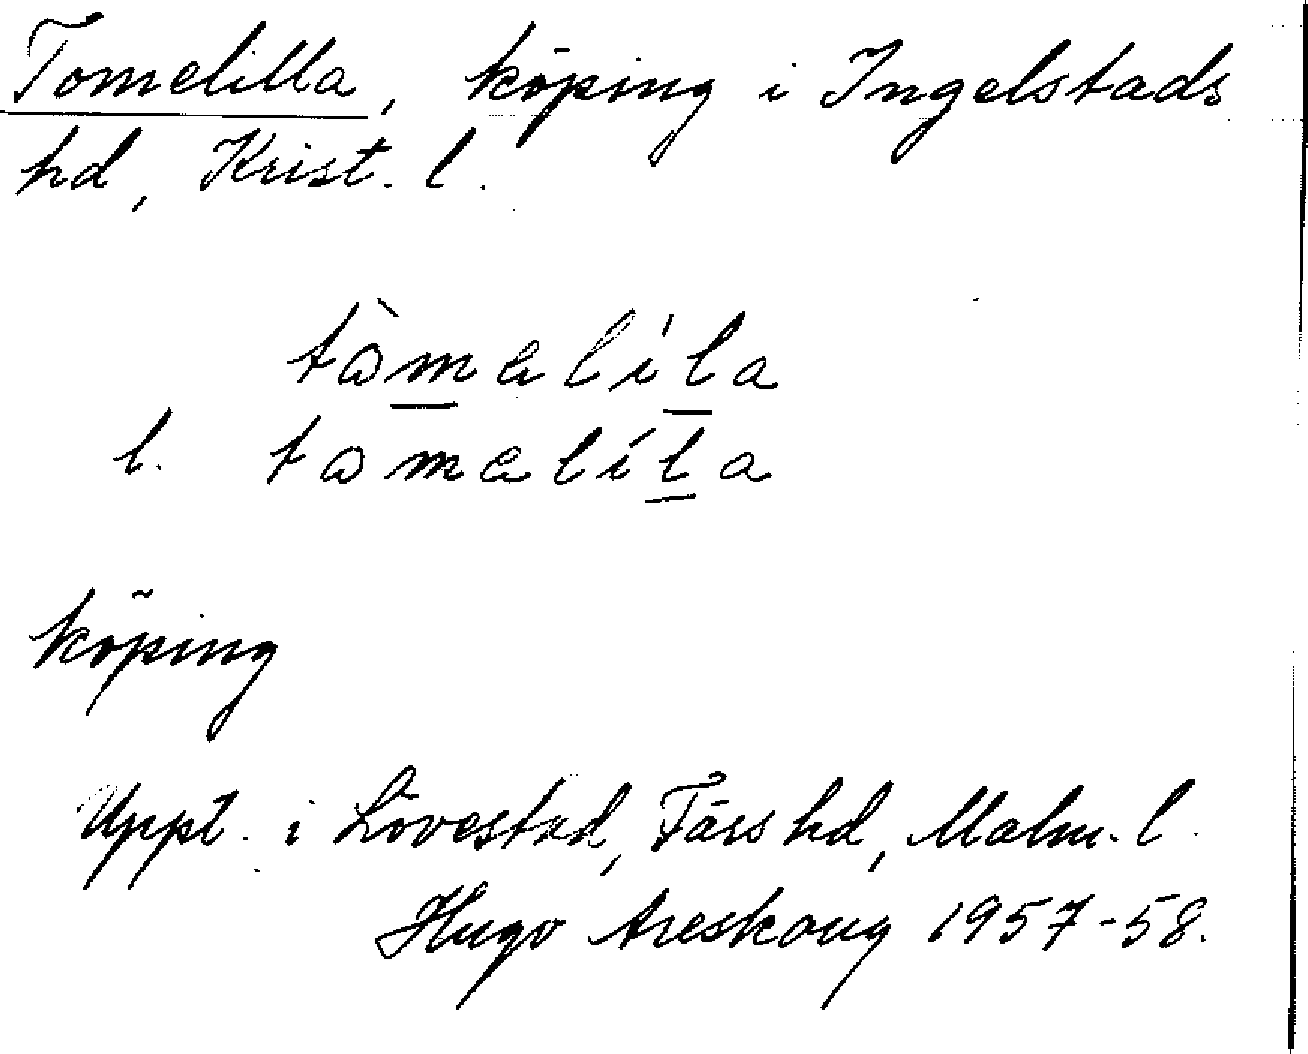 Tomelilla, köping i Ingelstads
hd, Krist. l.
tòmalíla
l. tomalíla
köping
Uppt. i Lövestad, Färs hd, Malm. l.
Hugo Areskoug 1957-58.